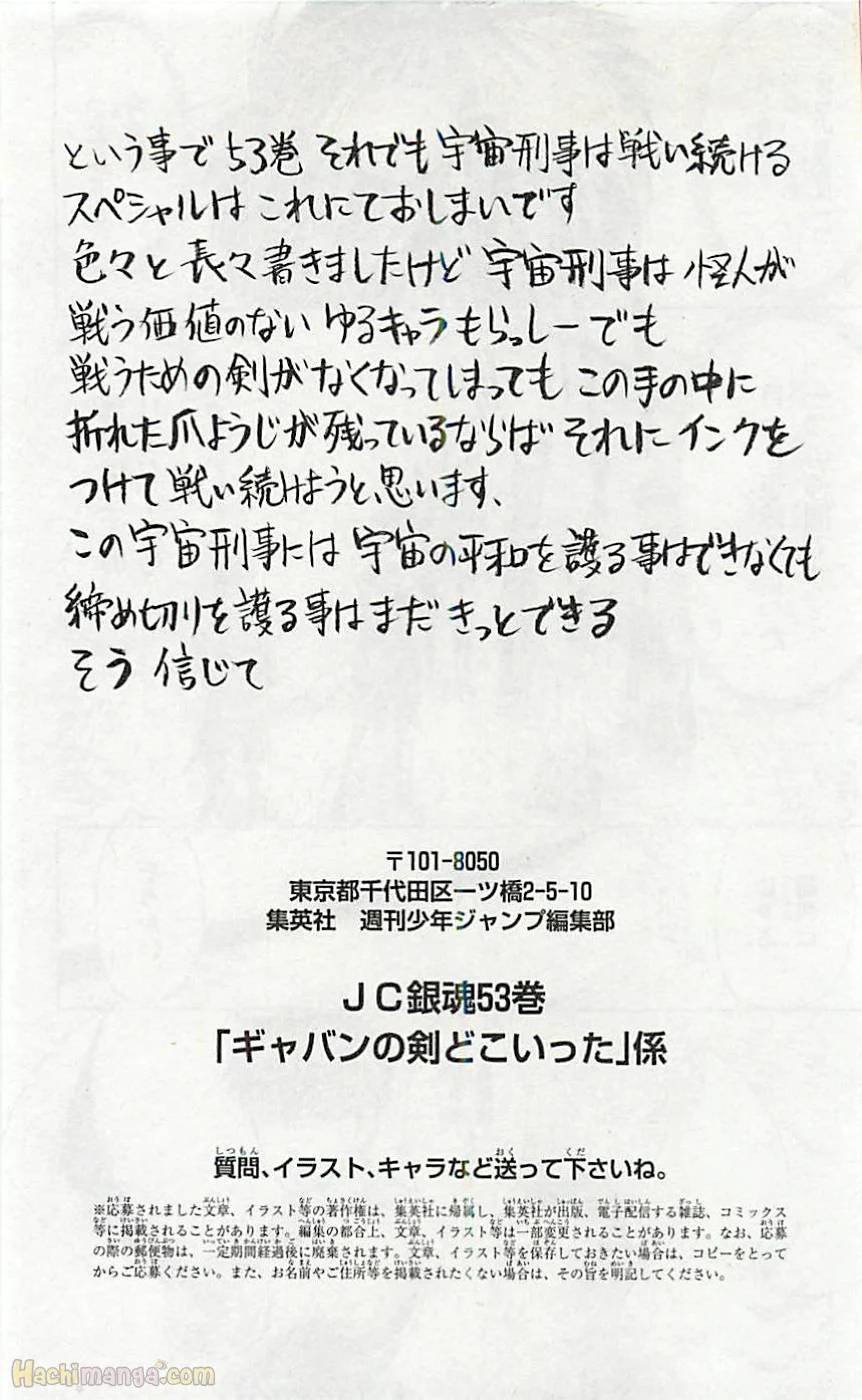 という事で53巻 それでも宇宙刑事は戦い続ける
スペシャルは これにておしまいです
色々と長々書きましたけど 宇宙刑事は 怪人が
戦う価値のない ゆるキャラもらっしーでも
戦うための剣がなくなってしまっても この手の中に
折れた爪ようじが残っているならば それにインクを
つけて戦い続けようと思います、
この宇宙刑事には 宇宙の平和を護る事はできなくても
締め切りを護る事はまだきっとできる
そう 信じて
〒101-8050
東京都千代田区一ツ橋2-5-10
集英社 週刊少年ジャンプ編集部
JC銀魂53巻
「ギャバンの剣どこいった」係
質問、イラスト、キャラなど送って下さいね。
※応募されました文章、イラスト等の著作権は、集英社に帰属し、集英社が出版、電子配信する雑誌、コミックス
等に掲載されることがあります。編集の都合上、文章、イラスト等は一部変更されることがあります。なお、応募
の際の郵便物は、一定期間経過後に廃棄されます。文章、イラスト等を保存しておきたい場合は、コピーをとって
からご応募ください。また、お名前やご住所等を掲載されたくない場合は、その旨を明記してください。
Hachimanga.com